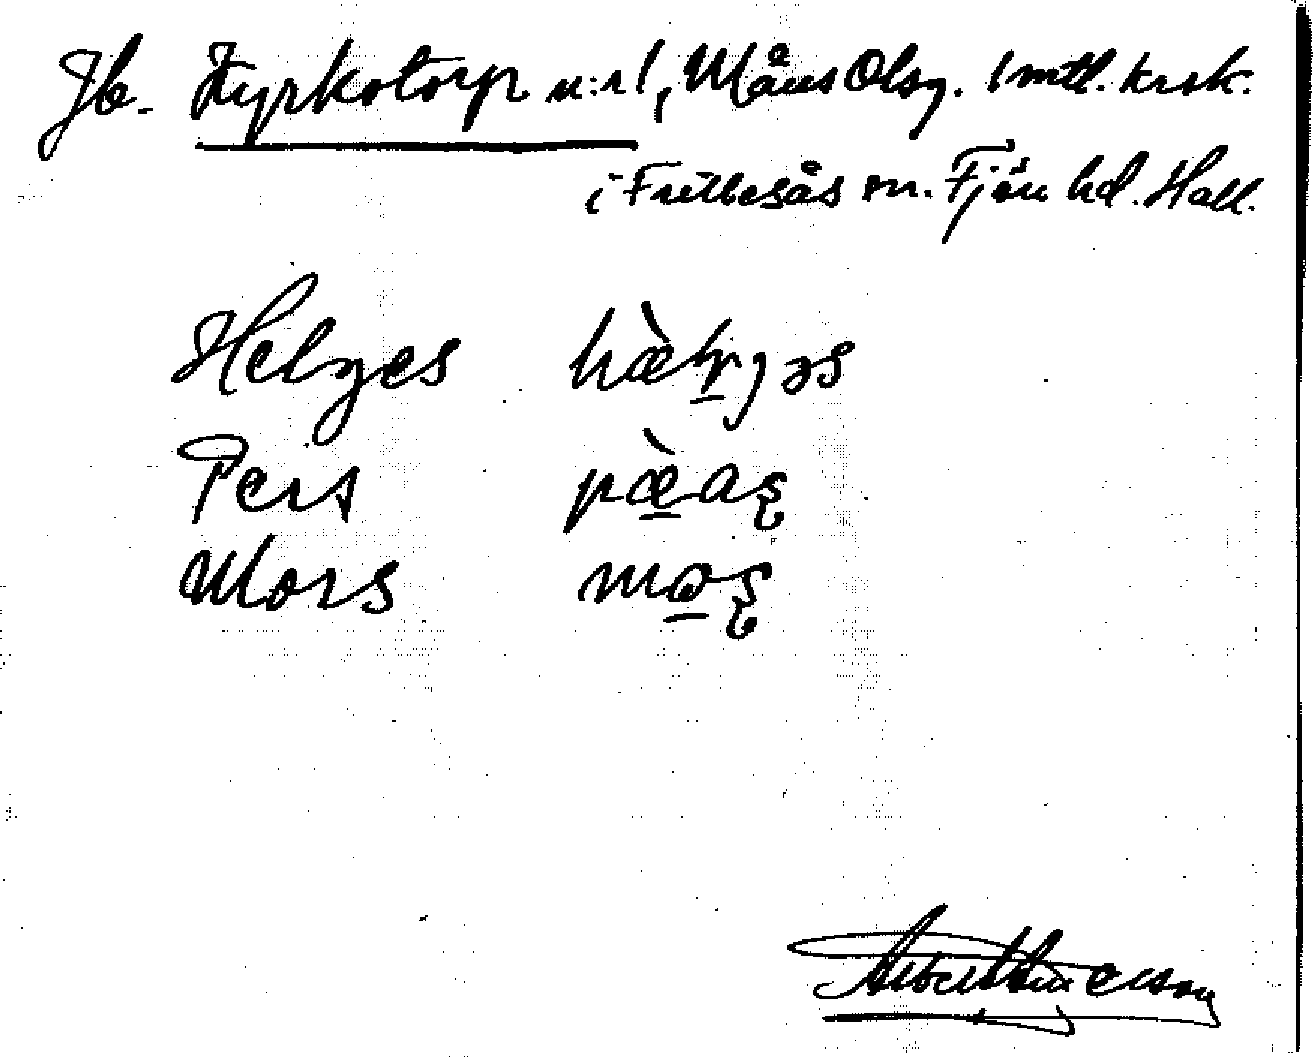 Jb. Kyrkotorp n:r 1, Måns Olsg. 1 mtl. krsk.
i Frillesås sn. Fjäre hd. Hall.
Helges hæ̀ljəs
Pers pæ̀aş
Mors moş